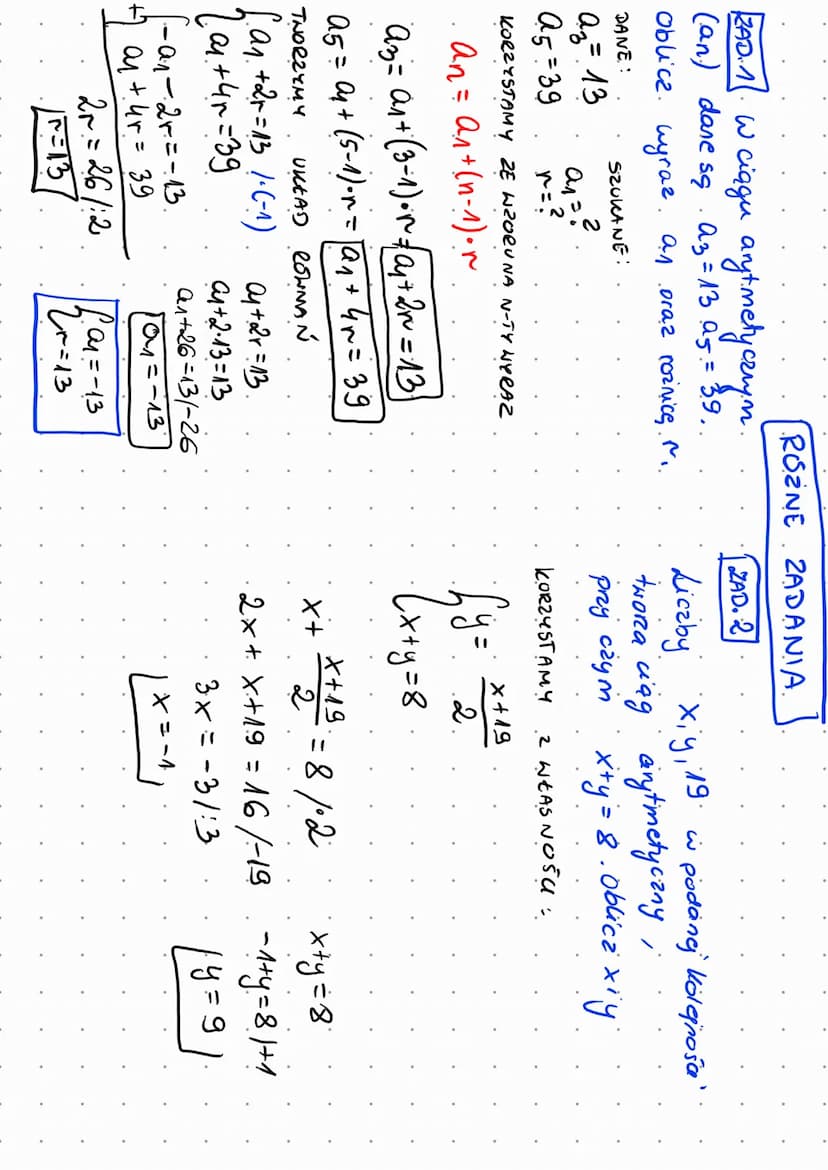 RÓŻNE ZADANIA
ZAD.1 W ciągu arytmetycznym
(an) dane są a₃=13 a₅=39.
Oblicz wyraz a₁ oraz różnicę r.
DANE: SZUKANE:
a₃=13 a₁=?
a₅=39 r=?
KORZYSTAMY ZE WZORU NA N-TY WYRAZ
an = a₁+(n-1)·r
a₃= a₁+(3-1)·r= a₁+2r=13
a₅= a₁+(5-1)·r= a₁+4r=39
TWORZYMY UKŁAD RÓWNAŃ
{a₁+2r=13 /·(-1)
{a₁+4r=39
{-a₁-2r=-13
+{a₁+4r=39
2r=26/:2
r=13
a₁+2r=13
a₁+2·13=13
a₁+26=13/-26
a₁=-13
{a₁=-13
{r=13
ZAD.2
Liczby x,y,19 w podanej kolejności
tworzą ciąg arytmetyczny,
przy czym x+y=8. Oblicz x i y
KORZYSTAMY Z WŁASNOŚCI:
{y= (x+19)/2
{x+y=8
x+ (x+19)/2 =8/·2
2x+x+19=16/-19
3x=-3/:3
x=-1
x+y=8
-1+y=8/+1
y=9